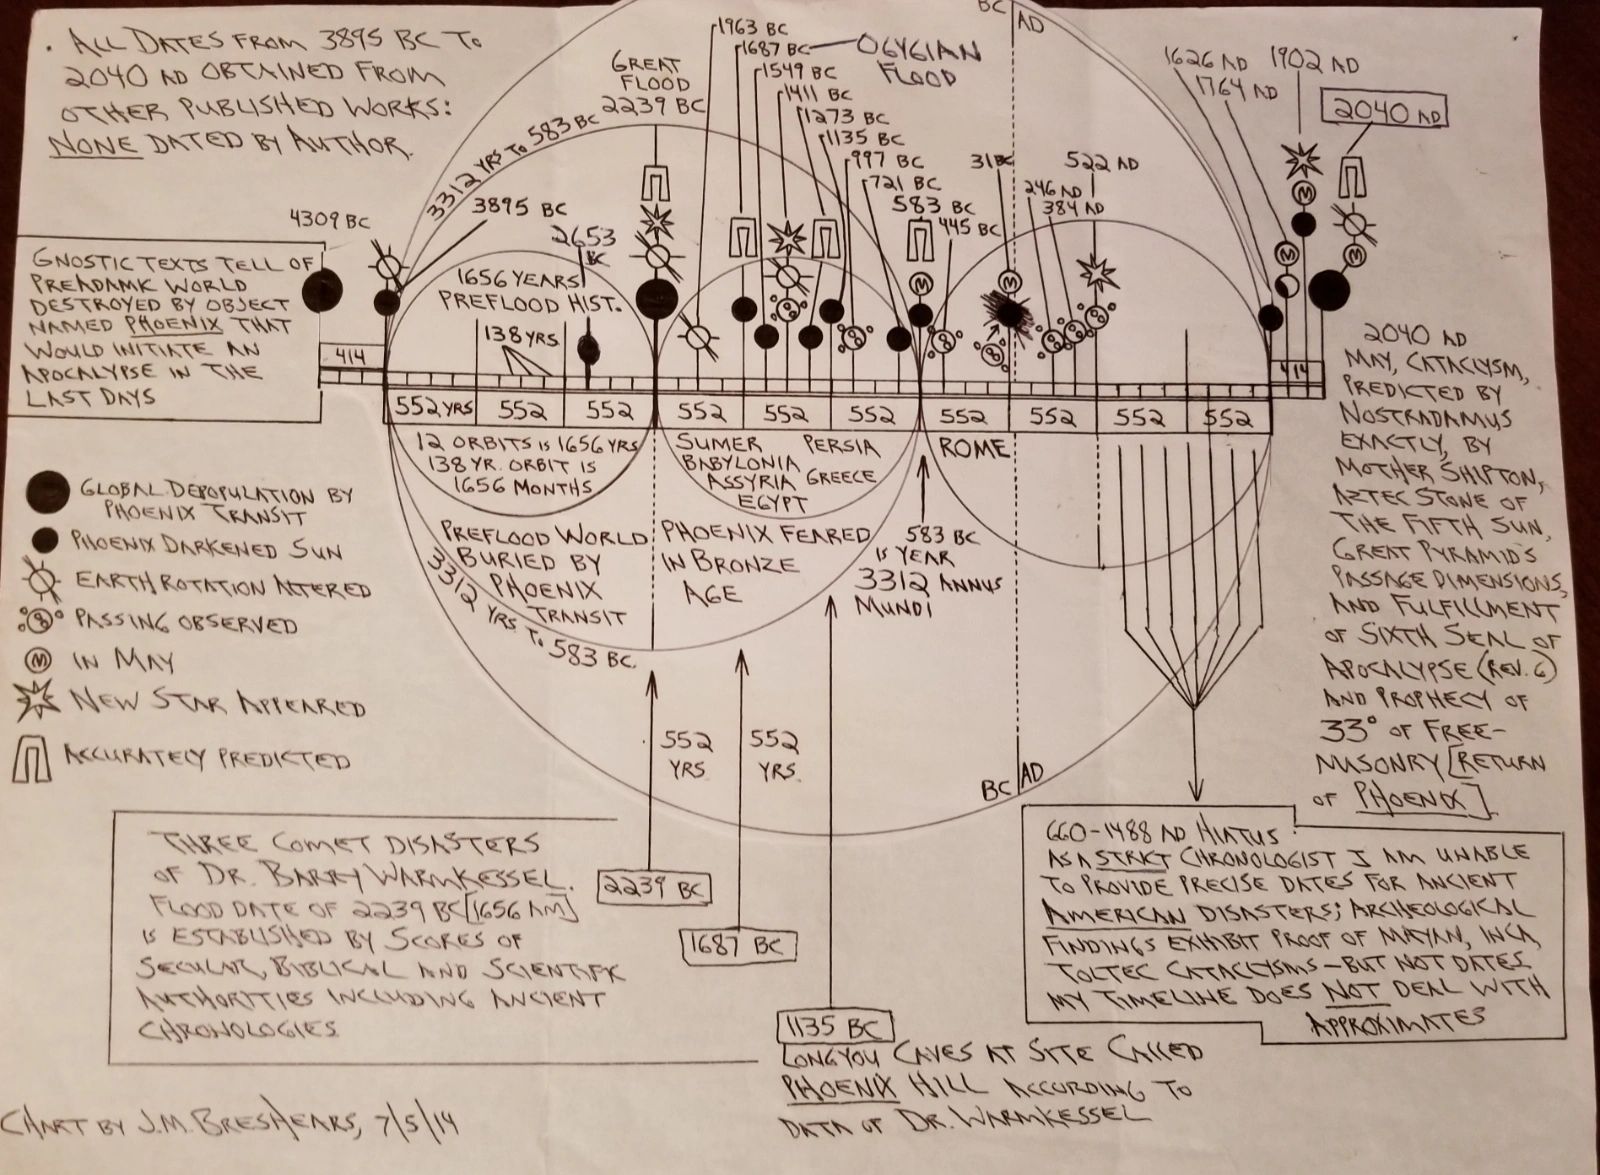 . ALL DATES FROM 3895 BC TO
2040 AD OBTAINED FROM
OTHER PUBLISHED WORKS:
NONE DATED BY AUTHOR.
BC AD
GREAT
FLOOD
2239 BC
1963 BC
1687 BC
OGYGIAN
FLOOD
1549 BC
1411 BC
1273 BC
1135 BC
997 BC
721 BC
583 BC
445 BC
31 BC
246 AD
384 AD
522 AD
1626 AD
1764 AD
1902 AD
2040 AD
3312 YRS TO 583 BC
4309 BC
3895 BC
2653
BC
1656 YEARS
PREFLOOD HIST.
138 YRS
GNOSTIC TEXTS TELL OF
PREADAMIC WORLD
DESTROYED BY OBJECT
NAMED PHOENIX THAT
WOULD INITIATE AN
APOCALYPSE IN THE
LAST DAYS
M
M
M
M
M
414
414
552 YRS 552 552 552 552 552 552 552 552 552
12 ORBITS IS 1656 YRS
138 YR. ORBIT IS
1656 MONTHS
SUMER PERSIA
BABYLONIA
ASSYRIA GREECE
EGYPT
ROME
PREFLOOD WORLD
BURIED BY
PHOENIX
TRANSIT
3312 YRS TO 583 BC.
PHOENIX FEARED
IN BRONZE
AGE
583 BC
IS YEAR
3312 ANNUS
MUNDI
2040 AD
MAY, CATACLYSM,
PREDICTED BY
NOSTRADAMUS
EXACTLY, BY
MOTHER SHIPTON,
AZTEC STONE OF
THE FIFTH SUN,
GREAT PYRAMID'S
PASSAGE DIMENSIONS,
AND FULFILLMENT
OF SIXTH SEAL OF
APOCALYPSE (REV. 6)
AND PROPHECY OF
33° OF FREE-
MASONRY [RETURN
OF PHOENIX].
GLOBAL DEPOPULATION BY
PHOENIX TRANSIT
PHOENIX DARKENED SUN
EARTH ROTATION ALTERED
PASSING OBSERVED
M IN MAY
NEW STAR APPEARED
ACCURATELY PREDICTED
552
YRS
552
YRS.
BC AD
THREE COMET DISASTERS
OF DR. BARRY WARMKESSEL.
FLOOD DATE OF 2239 BC [1656 AM]
IS ESTABLISHED BY SCORES OF
SECULAR, BIBLICAL AND SCIENTIFIC
AUTHORITIES INCLUDING ANCIENT
CHRONOLOGIES
2239 BC
1687 BC
1135 BC
LONGYOU CAVES AT SITE CALLED
PHOENIX HILL ACCORDING TO
DATA OF DR. WARMKESSEL
660-1488 AD HIATUS
AS A STRICT CHRONOLOGIST I AM UNABLE
TO PROVIDE PRECISE DATES FOR ANCIENT
AMERICAN DISASTERS; ARCHEOLOGICAL
FINDINGS EXHIBIT PROOF OF MAYAN, INCA,
TOLTEC CATACLYSMS—BUT NOT DATES.
MY TIMELINE DOES NOT DEAL WITH
APPROXIMATES
CHART BY J.M. BRESHEARS, 7/5/14